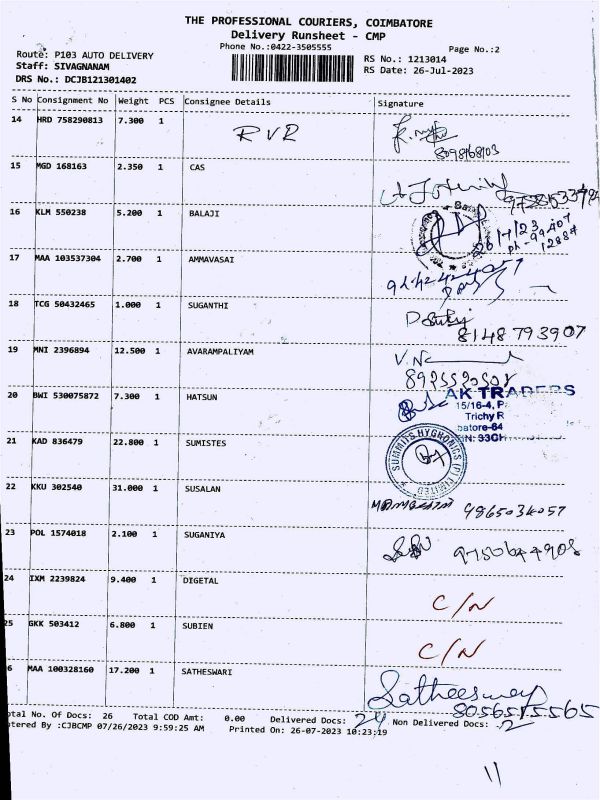 THE PROFESSIONAL COURIERS, COIMBATORE
Delivery Runsheet - CMP
Phone No.:0422-3505555
Page No.:2
Route: P103 AUTO DELIVERY
RS No.: 1213014
Staff: SIVAGNANAM
RS Date: 26-Jul-2023
DRS No.: DCJB121301402
S No Consignment No Weight PCS Consignee Details Signature
14 HRD 758290813 7.300 1 RVR
15 MGD 168163 2.350 1 CAS
16 KLM 550238 5.200 1 BALAJI
26/7/23
17 MAA 103537304 2.700 1 AMMAVASAI
18 TCG 50432465 1.000 1 SUGANTHI
8148 793907
19 MNI 2396894 12.500 1 AVARAMPALIYAM
20 BWI 530075872 7.300 1 HATSUN
AK TRADERS
15/16-4, P
Trichy R
batore-64
IN: 33CH
21 KAD 836479 22.800 1 SUMISTES
SUMMITS HYGRONICS (P) LIMITED
22 KKU 302540 31.000 1 SUSALAN
9865034057
23 POL 1574018 2.100 1 SUGANIYA
24 IXM 2239824 9.400 1 DIGETAL C/N
25 GKK 503412 6.800 1 SUBIEN C/N
6 MAA 100328160 17.200 1 SATHESWARI
8056515565
otal No. Of Docs: 26 Total COD Amt: 0.00 Delivered Docs: 24 Non Delivered Docs: 2
ntered By :CJBCMP 07/26/2023 9:59:25 AM Printed On: 26-07-2023 10:23:19